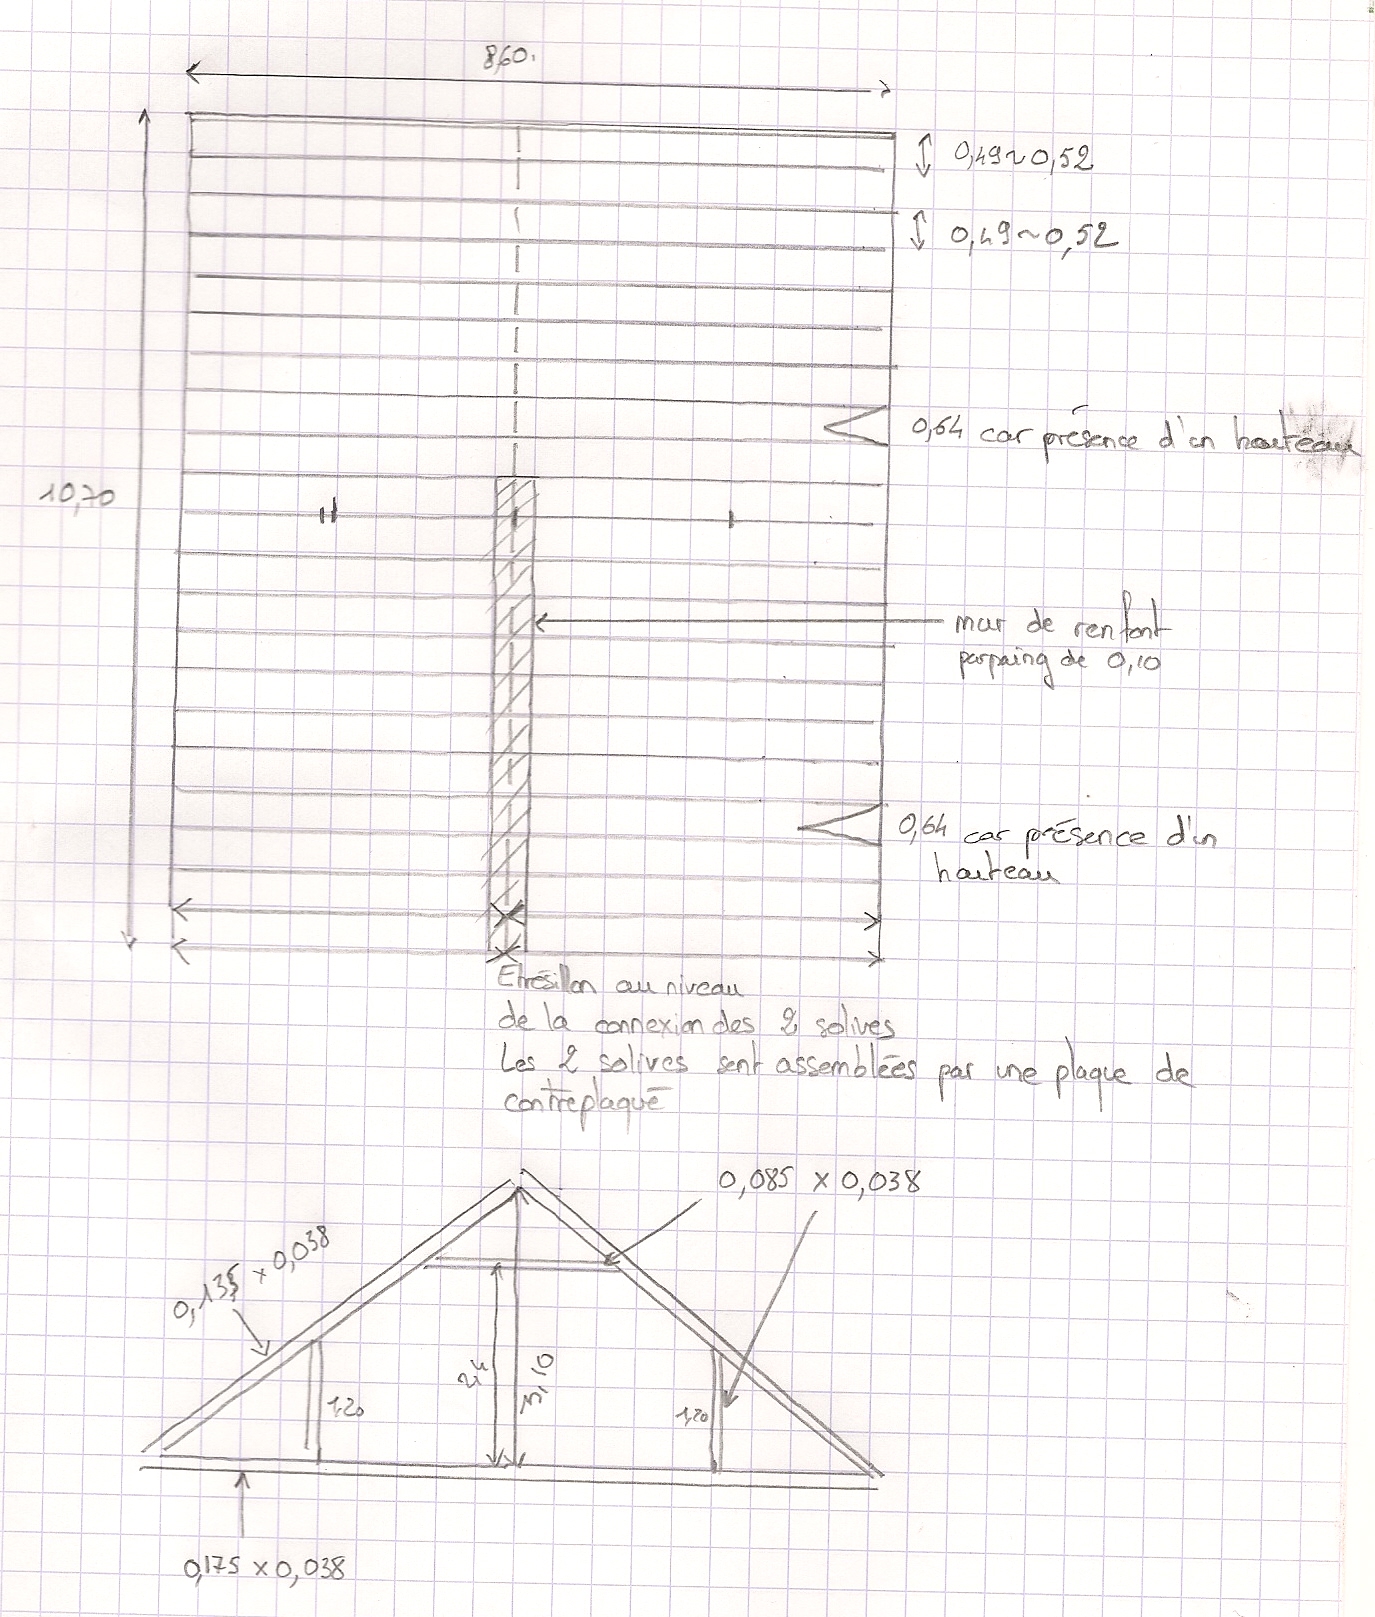 8,60.
0,49~0,52
0,49~0,52
0,64 car présence d'un houteau
10,70
mur de renfort
parpaing de 0,10
0,64 car présence d'un
houteau
Etrésillon au niveau
de la connexion des 2 solives
Les 2 solives sont assemblées par une plaque de
contreplaqué
0,085 x 0,038
0,135 x 0,038
2,4
3,10
1,20
1,20
0,175 x 0,038